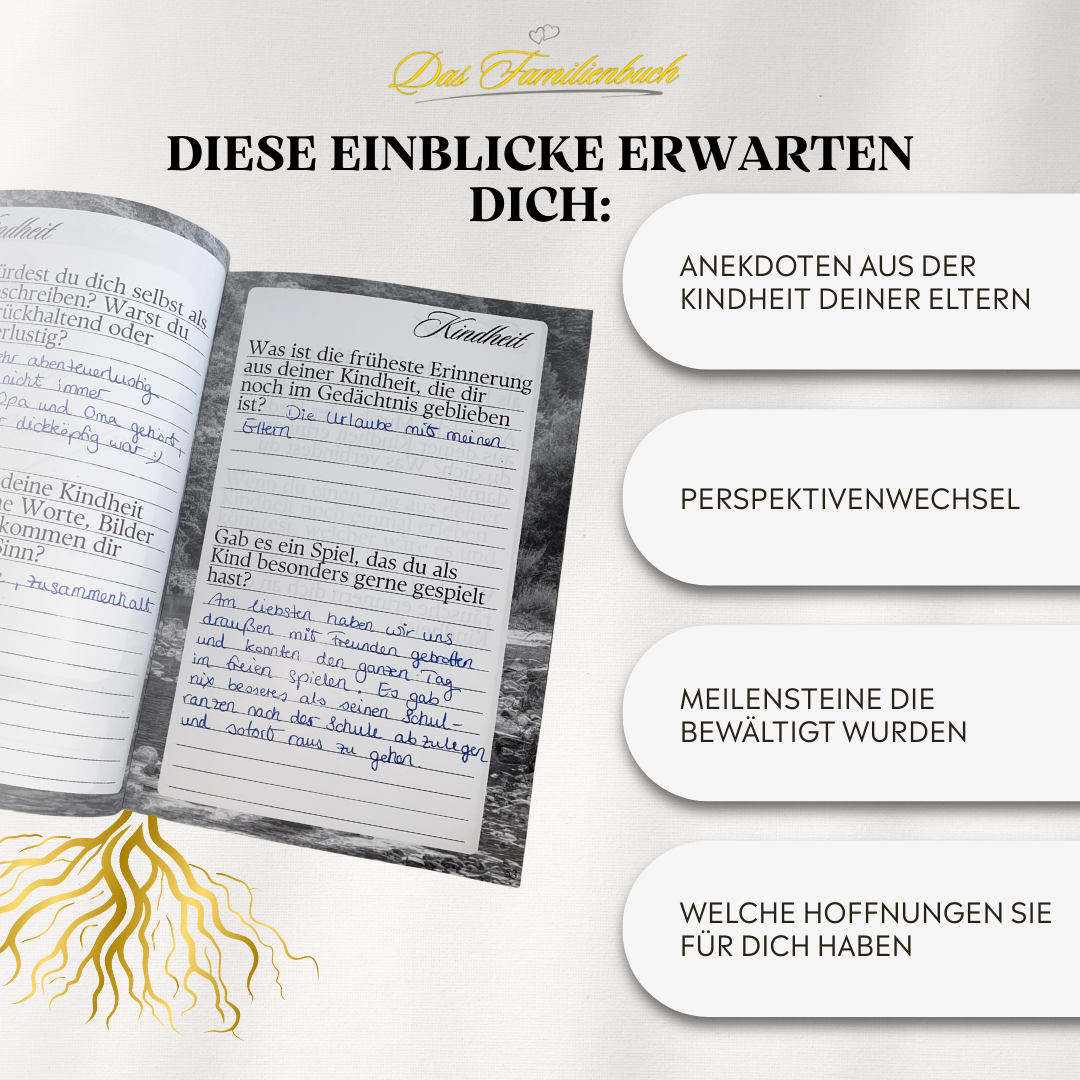 Das Familienbuch
DIESE EINBLICKE ERWARTEN
DICH:
ürdest du dich selbst als
schreiben? Warst du
rückhaltend oder
erlustig?
ehr abenteuerlustig
nicht immer
Opa und Oma gehört,
r dickköpfig war ;)
deine Kindheit
ne Worte, Bilder
kommen dir
Sinn?
, zusammenhalt
Kindheit
Was ist die früheste Erinnerung
aus deiner Kindheit, die dir
noch im Gedächtnis geblieben
ist? Die Urlaube mit meinen
Eltern
Gab es ein Spiel, das du als
Kind besonders gerne gespielt
hast?
Am liebsten haben wir uns
draußen mit Freunden getroffen
und konnten den ganzen Tag
im freien spielen. Es gab
nix besseres als seinen Schul-
ranzen nach der Schule abzulegen
und sofort raus zu gehen
ANEKDOTEN AUS DER
KINDHEIT DEINER ELTERN
PERSPEKTIVENWECHSEL
MEILENSTEINE DIE
BEWÄLTIGT WURDEN
WELCHE HOFFNUNGEN SIE
FÜR DICH HABEN